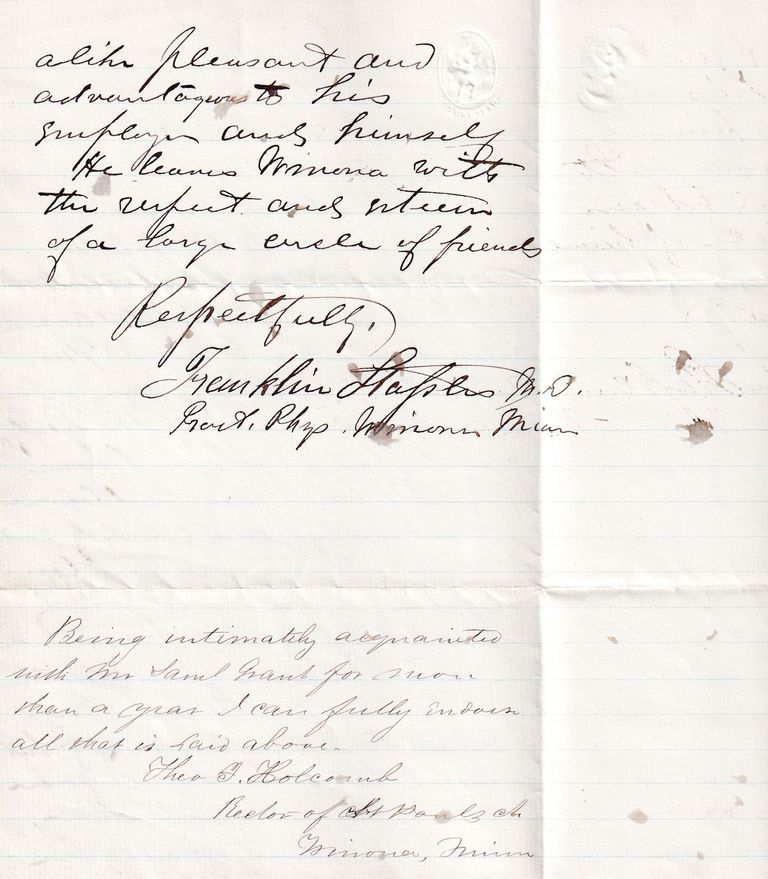 alike pleasant and
advantageous to his
employer and himself
He leaves Winona with
the respect and esteem
of a large circle of friends
Respectfully,
Franklin Staples M.D.
Pract. Phys. Winona Minn
Being intimately acquainted
with Mr Saml Grant for more
than a year I can fully endorse
all that is said above.
Theo I. Holcomb
Rector of St Pauls ch
Winona, Minn